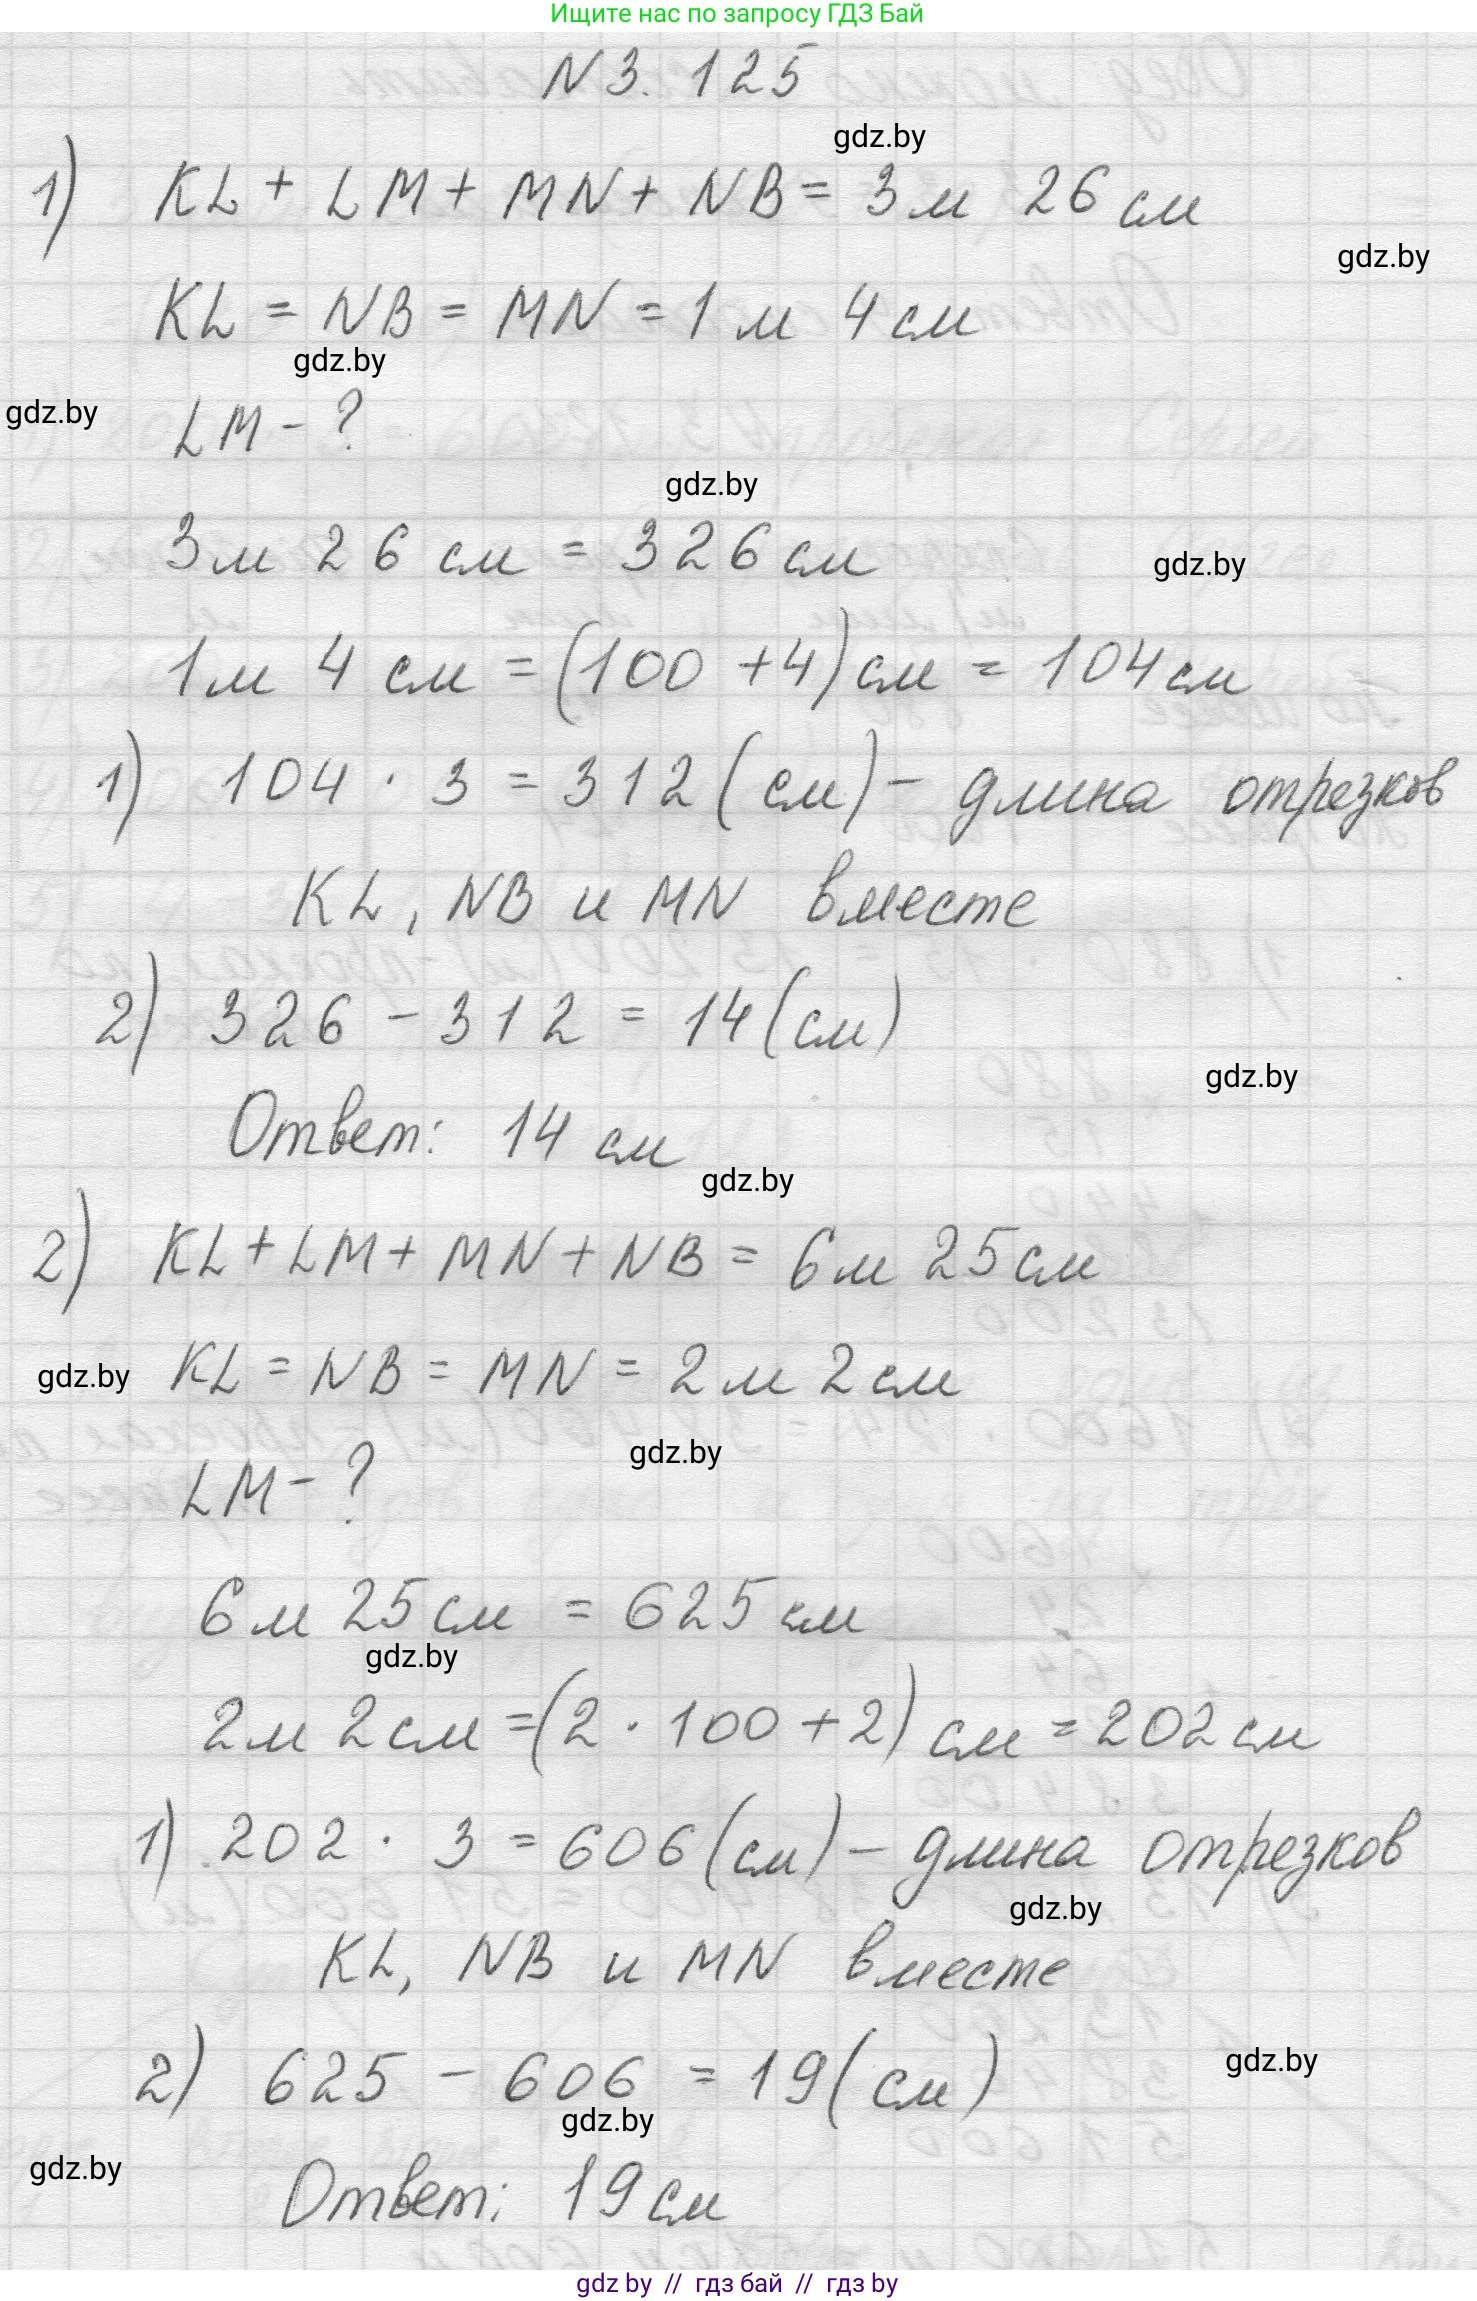 Ищите нас по запросу ГДЗ Бай
N 3. 125
gdz.by
1) KL + LM + MN + NB = 3 м 26 см
gdz.by
KL = NB = MN = 1 м 4 см
gdz.by
gdz.by
LM - ?
gdz.by
3 м 26 см = 326 см
gdz.by
1 м 4 см = (100 + 4) см = 104 см
1) 104 · 3 = 312 (см) - длина отрезков
KL, NB и MN вместе
2) 326 - 312 = 14 (см)
gdz.by
Ответ: 14 см
gdz.by
2) KL + LM + MN + NB = 6 м 25 см
KL = NB = MN = 2 м 2 см
gdz.by
gdz.by
LM - ?
6 м 25 см = 625 см
gdz.by
2 м 2 см = (2 · 100 + 2) см = 202 см
1) 202 · 3 = 606 (см) - длина отрезков
gdz.by
KL, NB и MN вместе
2) 625 - 606 = 19 (см)
gdz.by
gdz.by
gdz.by
Ответ: 19 см
gdz by // гдз бай // гдз by